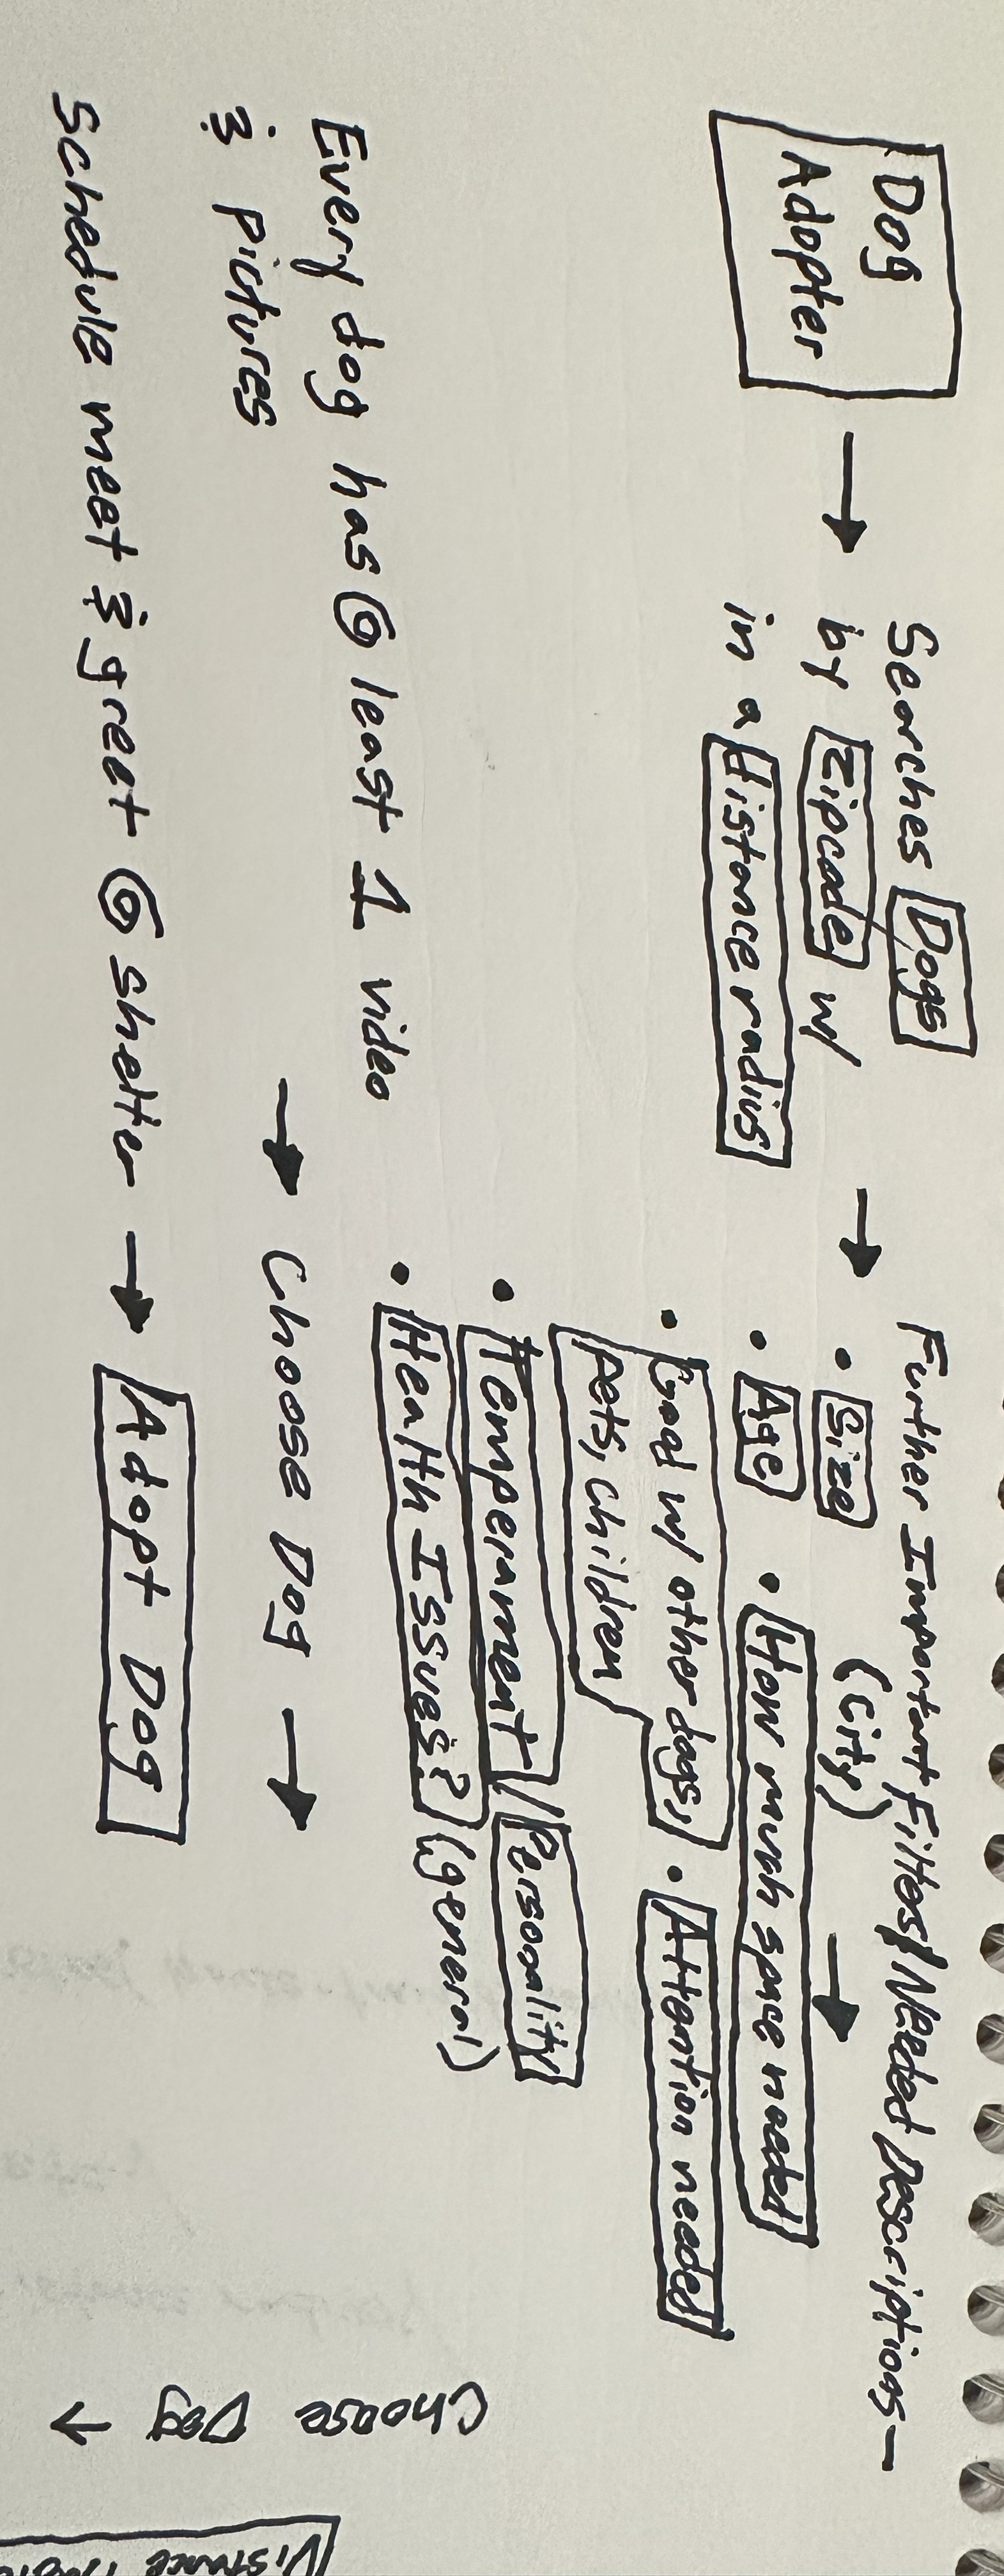 Dog
Adopter
→ Searches Dogs
by Zipcode w/
in a distance radius
→ Further Important Filters/Needed Descriptions –
• Size (City) →
• Age • How much space needed
• Good w/ other dogs, • Attention needed
pets, children
• Temperament/Personality
• Health Issues? (general)
Every dog has @ least 1 video
& pictures → Choose Dog →
Schedule meet & greet @ shelter → Adopt Dog
Choose
Dog
↓
Distance